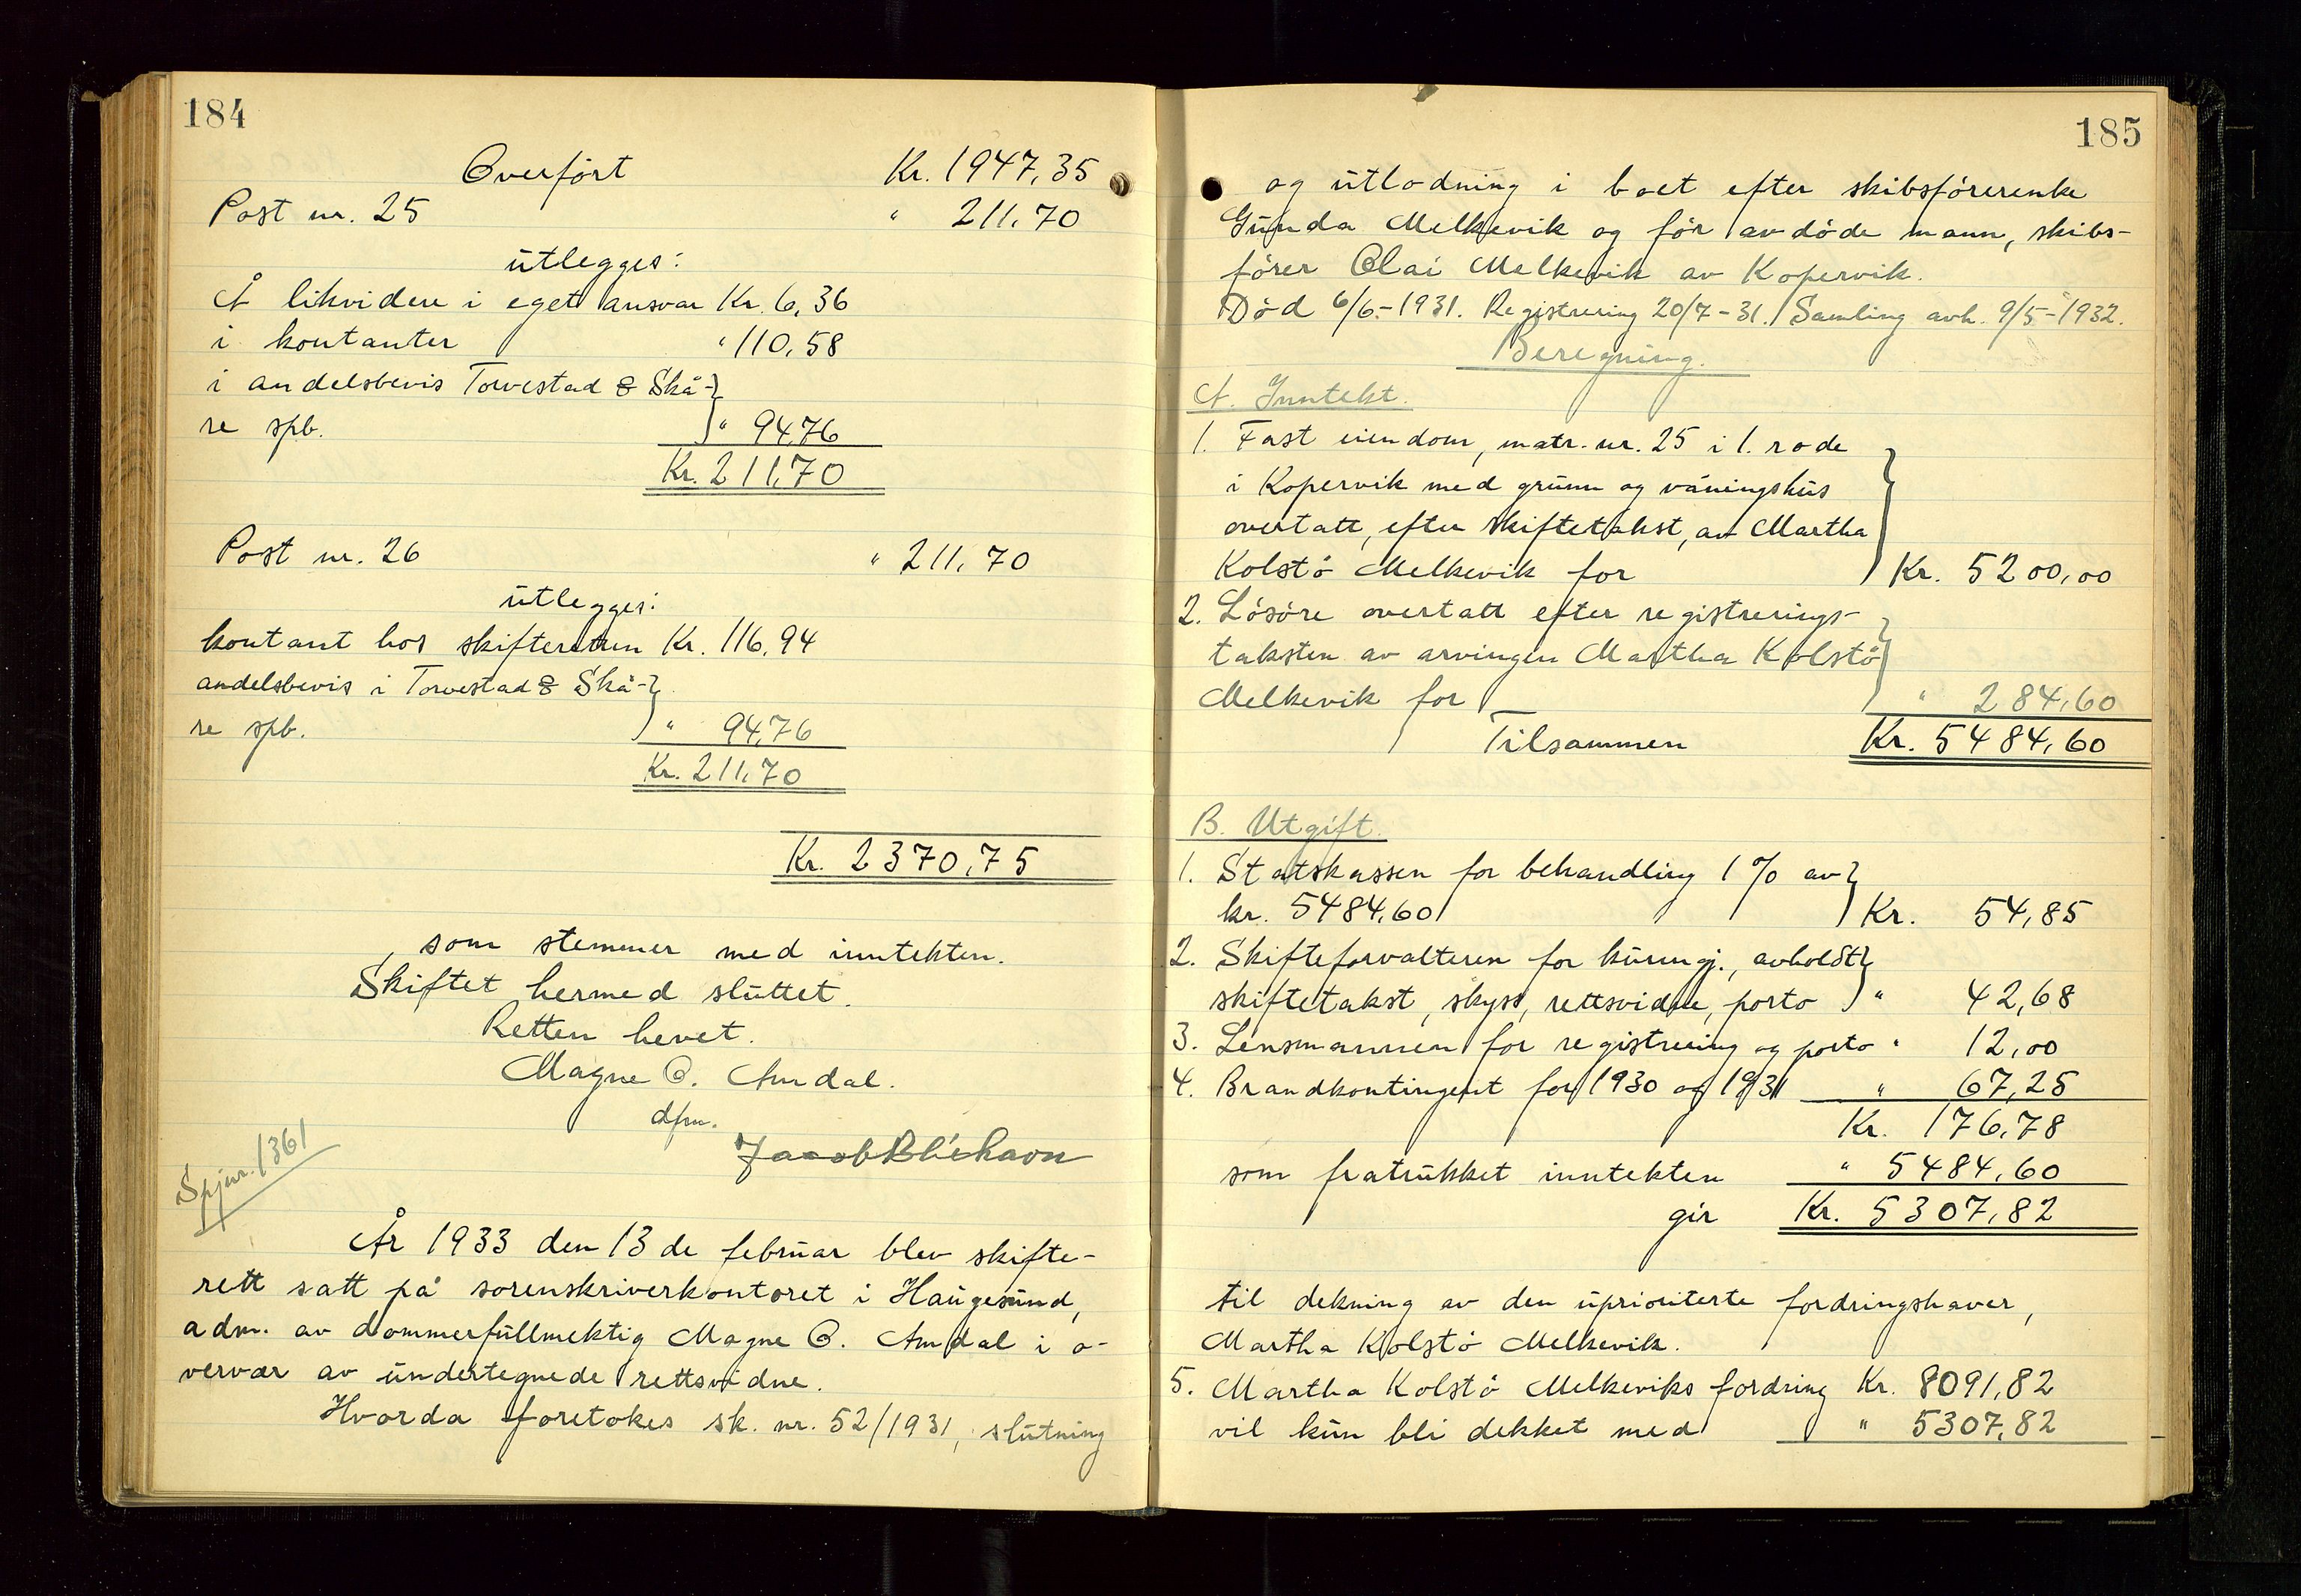 184
Overført Kr. 1947,35
Post nr. 25 " 211,70
utlegges:
Å likvidere i eget ansvar Kr. 6,36
i kontanter " 110,58
i andelsbevis Torvestad & Skå-
re spb. " 94,76
Kr. 211,70
Post nr. 26 " 211,70
utlegges:
kontant hos skifteretten Kr. 116,94
andelsbevis i Torvestad & Skå-
re spb. " 94,76
Kr. 211,70
Kr. 2370,75
, som stemmer med inntekten.
Skiftet hermed sluttet.
Retten hevet.
Magne O. Amdal.
dfm.
Jacob Blikavn
Spjnr. 1361
År 1933 den 13 de februar blev skifte-
rett satt på sorenskriverkontoret i Haugesund,
adm. av dommerfullmektig Magne O. Amdal i o-
vervær av undertegnede rettsvidne.
Hvorda foretokes sk. nr. 52/1931, slutning
185
og utlodning i boet efter skibsførerenke
Gunda Melkevik og før avdøde mann, skibs-
fører Olai Melkevik av Kopervik.
Død 6/6-1931. Registrering 20/7-31. Samling avh. 9/5-1932.
Beregning.
A. Inntekt.
1. Fast eiendom, matr. nr. 25 i 1. rode
i Kopervik med grunn og våningshus
overtatt, efter skiftetakst, av Martha
Kolstø Melkevik for Kr. 5200,00
2. Løsøre overtatt efter registrerings-
taksten av arvingen Martha Kolstø
Melkevik for " 284,60
Tilsammen Kr. 5484,60
B. Utgift.
1. Statskassen for behandling 1 % av
kr. 5484,60 Kr. 54,85
2. Skifteforvalteren for kunngj., avholdt
skiftetakst, skyss, rettsvidne, porto " 42,68
3. Lensmannen for registrering og porto " 12,00
4. Brandkontingent for 1930 og 1931 " 67,25
Kr. 176,78
som fratrukket inntekten " 5484,60
gir Kr. 5307,82
til dekning av den uprioriterte fordringshaver,
Martha Kolstø Melkevik.
5. Martha Kolstø Melkeviks fordring Kr. 8091,82
vil kun bli dekket med " 5307,82